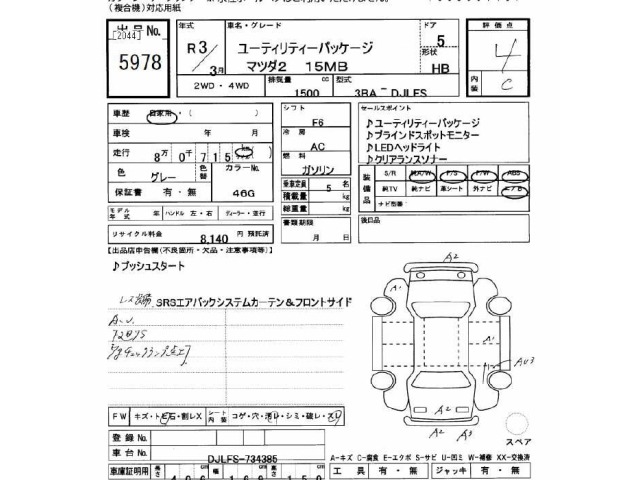 (複合機)対応用紙
出品No. [2044] 5978
年式 R3/3月
車名・グレード ユーティリティーパッケージ
マツダ2 15MB
ドア 5
形状 HB
評価点 4
内装 C
2WD・4WD
排気量 1500 cc
型式 3BA-DJLFS
車歴 自家用・( )
車検 年 月
走行 8万0千715
色 グレー
色替
カラーNo. 46G
保証書 有・無
モデル年式 年
ハンドル 左・右
ディーラー・並行
リサイクル料金 8,140円 預託済
シフト F6
冷房 AC
燃料 ガソリン
乗車定員 5名
積載量 kg
総重量 kg
書類期限 月 日
セールスポイント
♪ユーティリティーパッケージ
♪ブラインドスポットモニター
♪LEDヘッドライト
♪クリアランスソナー
装備品
S/R 純A/W P/S P/W ABS
純TV 純ナビ 革シート 外ナビ エアB
ナビ型番
後日品
【出品店申告欄(不良箇所・欠品・注意事項等)】
♪プッシュスタート
SRSエアバックシステムカーテン&フロントサイド
A2
A1
A1
AU3
A2
A2
A3
スペア
FW キズ・トビ石・割レX
シート内装 コゲ・穴・汚レ・シミ・破レ・スレ
登録No.
車台No. DJLFS-734385
A-キズ C-腐食 E-エクボ S-サビ U-凹ミ W-補修 XX-交換済
車庫証明用 長さ 406cm 幅 169cm 高さ 150
工具 有・無
ジャッキ 有・無